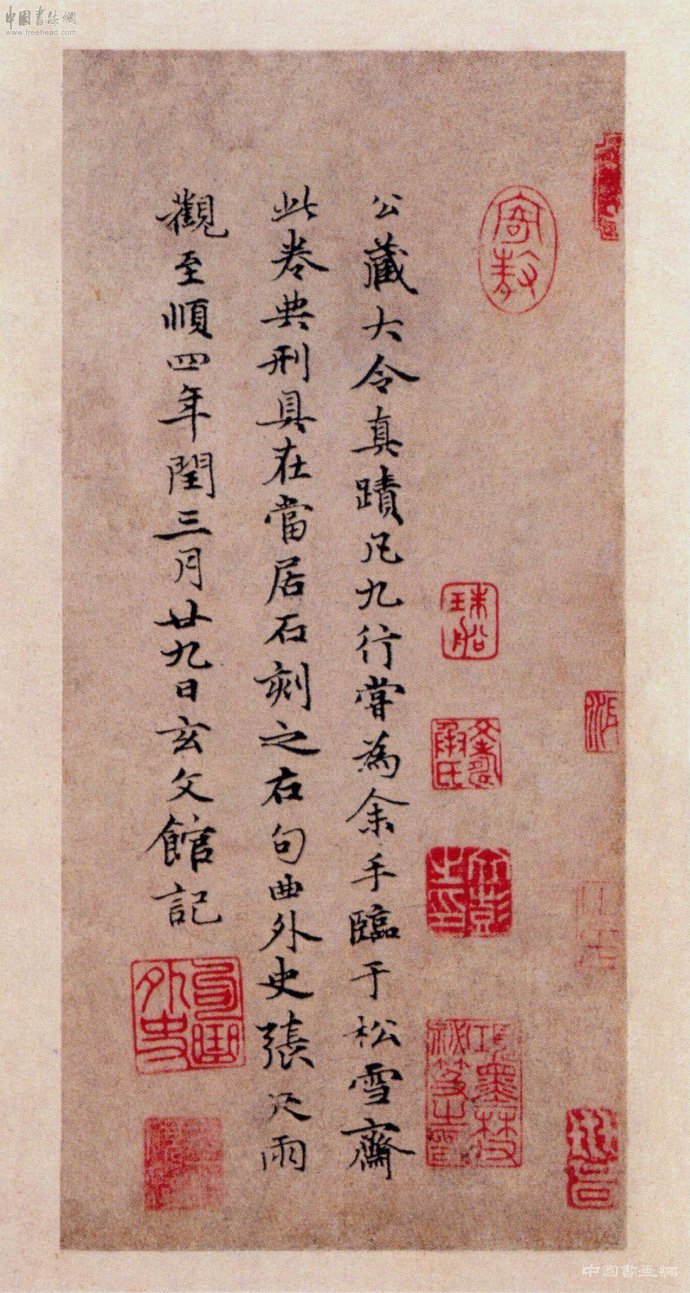 中國書法網
www.freehead.com
公藏大令真蹟凡九行嘗為余手臨于松雪齋
此卷典刑具在當居石刻之右句曲外史張天雨
觀至順四年閏三月廿九日玄文館記
項墨林秘笈之印
句曲外史
中國書画網